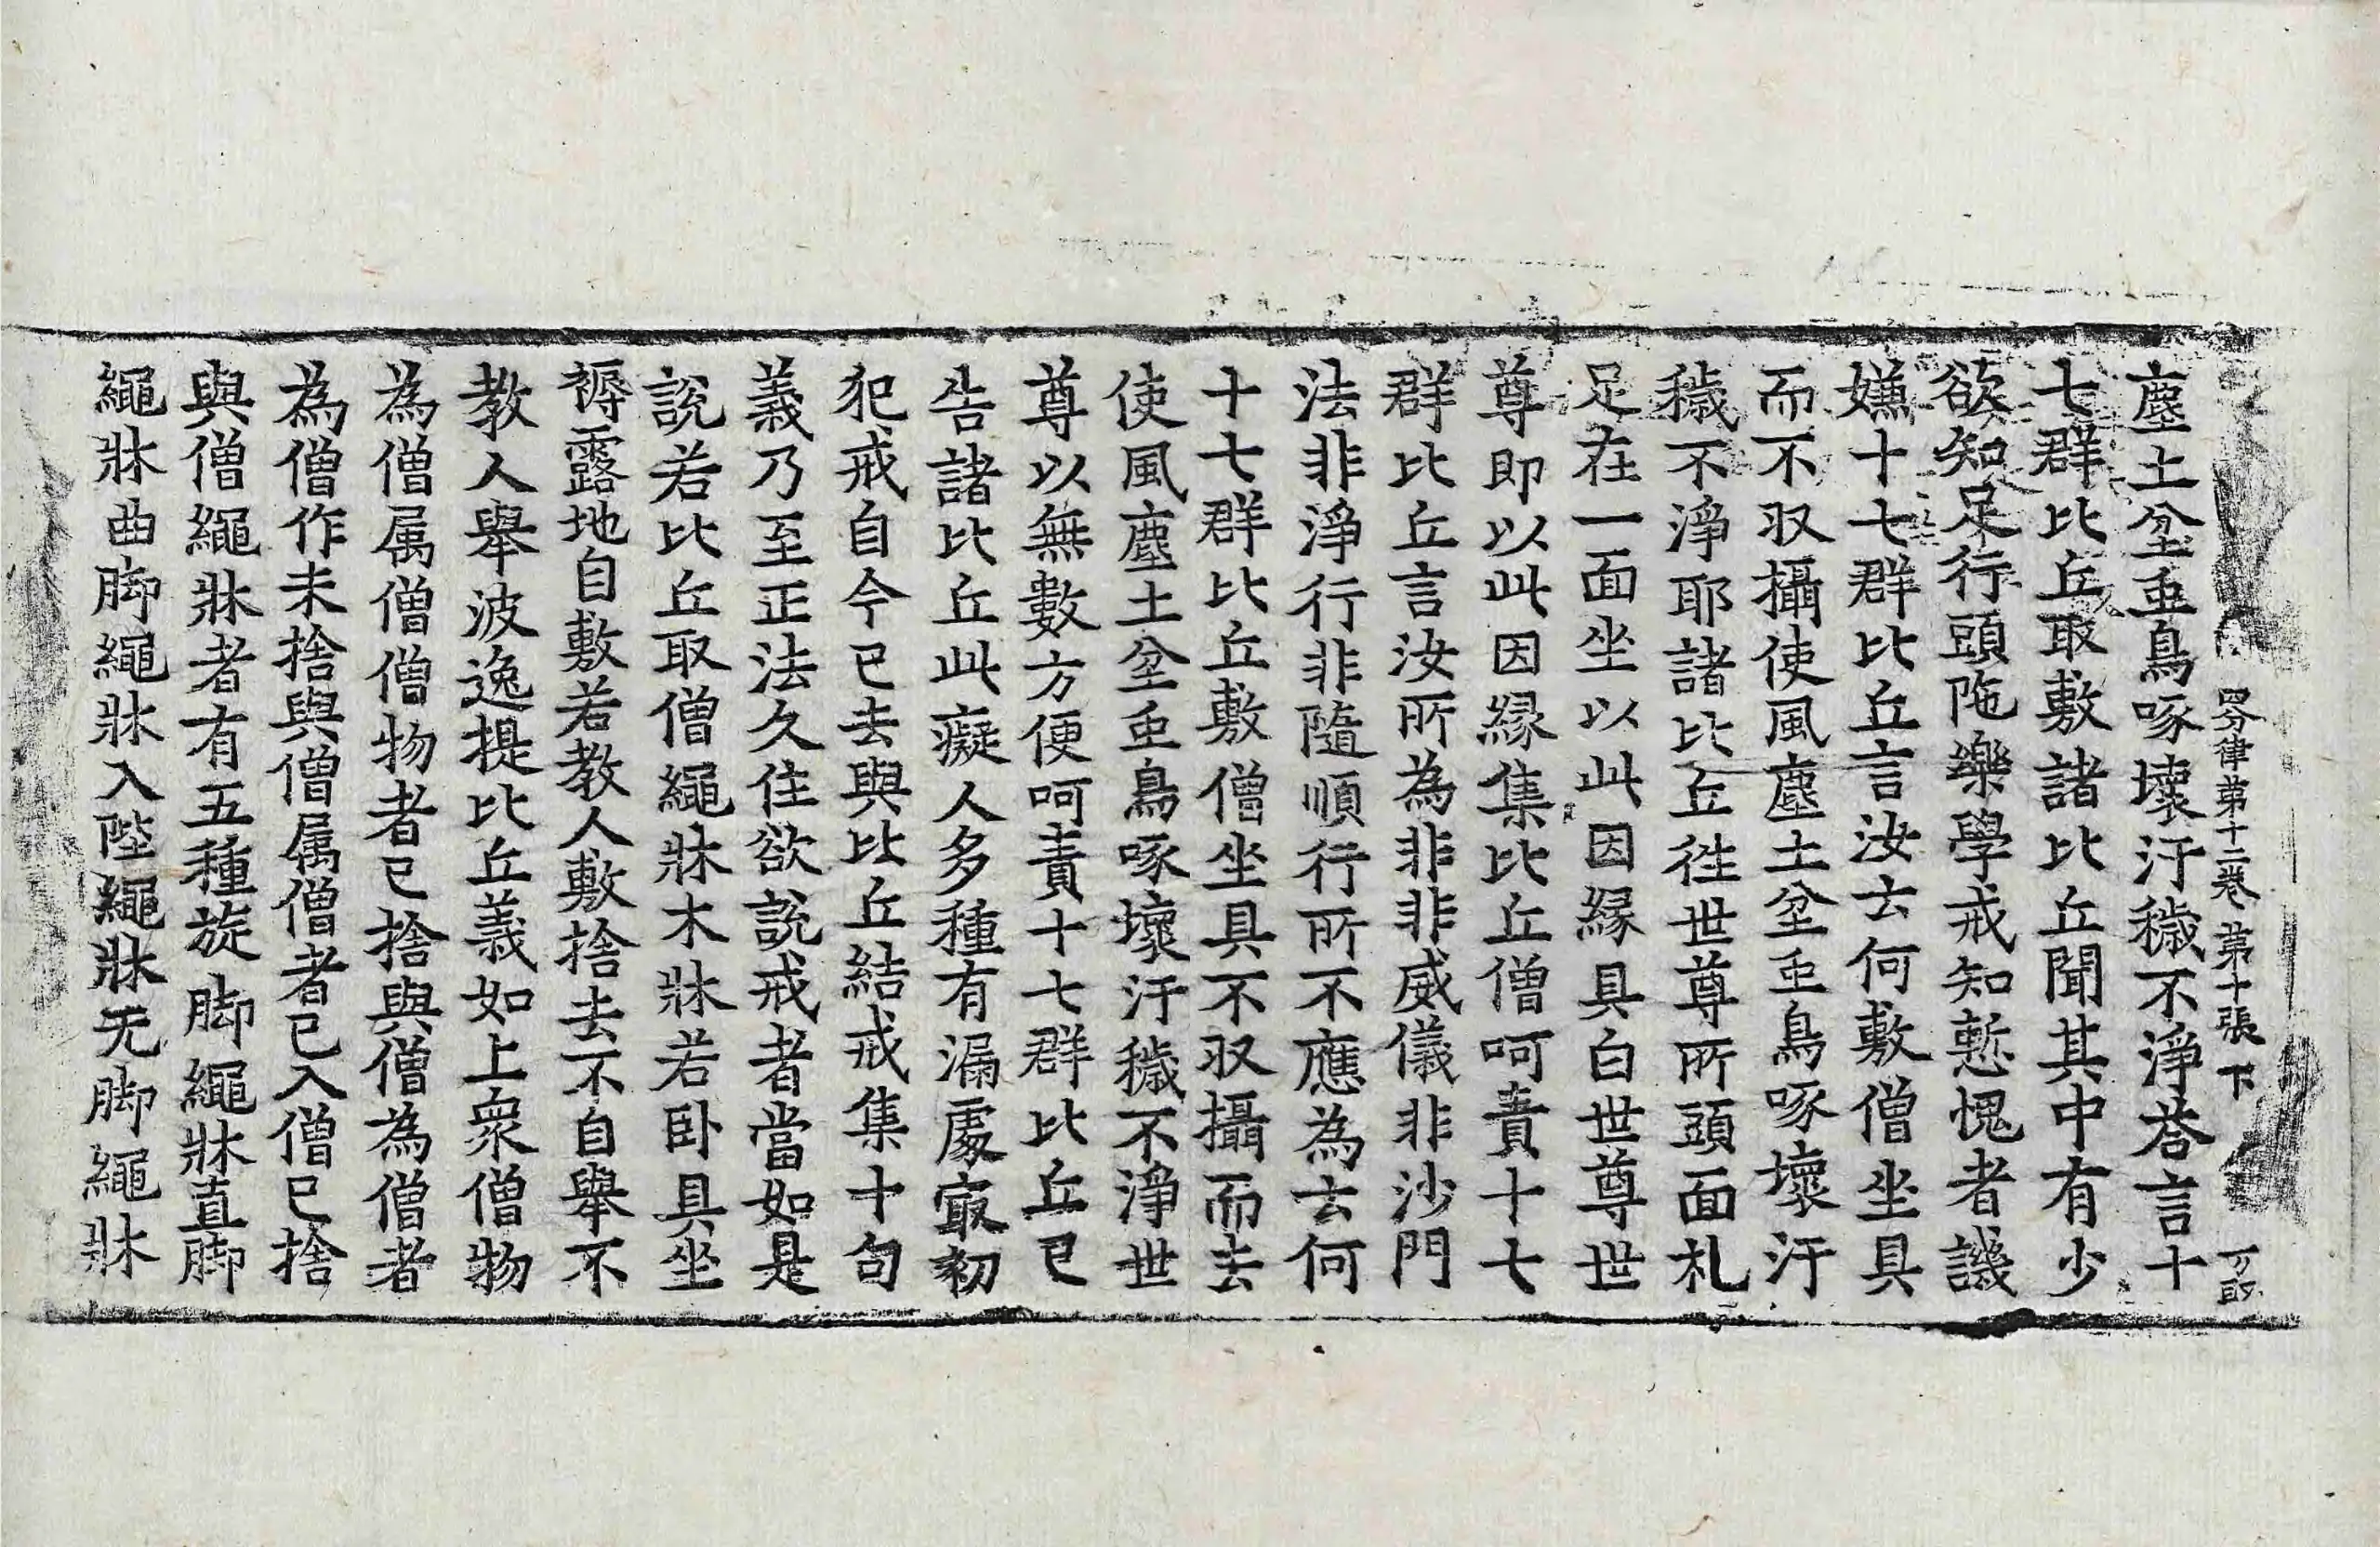 四分律第十二卷 第十張 下
塵土坌䖝鳥啄壞汙穢不淨荅言十
七群比丘取敷諸比丘聞其中有少
欲知足行頭陁樂學戒知慙愧者譏
嫌十七群比丘言汝去何敷僧坐具
而不収攝使風塵土坌䖝鳥啄壞汙
穢不淨耶諸比丘徃世尊所頭面札
足在一面坐以此因縁具白世尊世
尊即以此因縁集比丘僧呵責十七
群比丘言汝所為非非威儀非沙門
法非淨行非隨順行所不應為云何
十七群比丘敷僧坐具不収攝而去
使風塵土坌䖝鳥啄壞汙穢不淨世
尊以無數方便呵責十七群比丘已
告諸比丘此癡人多種有漏處㝡初
犯戒自今已去與比丘結戒集十句
義乃至正法久住欲說戒者當如是
說若比丘取僧繩牀木牀若卧具坐
褥露地自敷若教人敷捨去不自舉不
教人舉波逸提比丘義如上衆僧物
為僧属僧僧物者已捨與僧為僧者
為僧作未捨與僧属僧者已入僧已捨
與僧繩牀者有五種旋脚繩牀直脚
繩牀曲脚繩牀入陛繩牀无脚繩牀